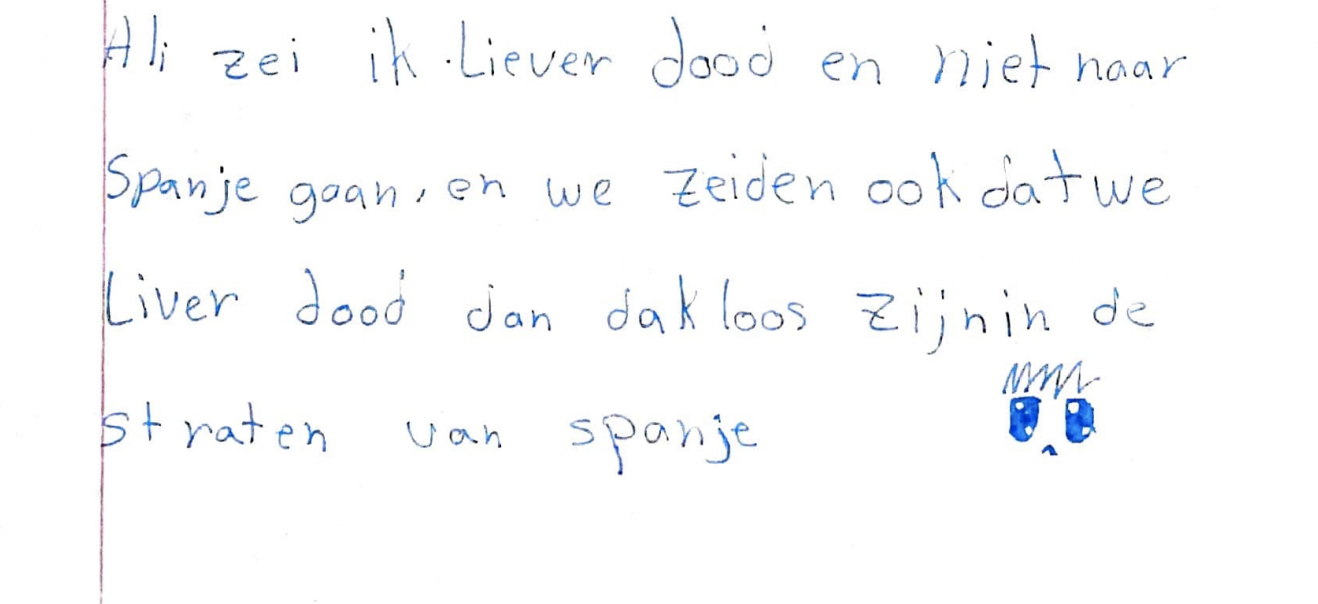 Ali zei ik Liever dood en niet naar
Spanje gaan, en we zeiden ook dat we
Liver dood dan dakloos zijnin de
straten van spanje